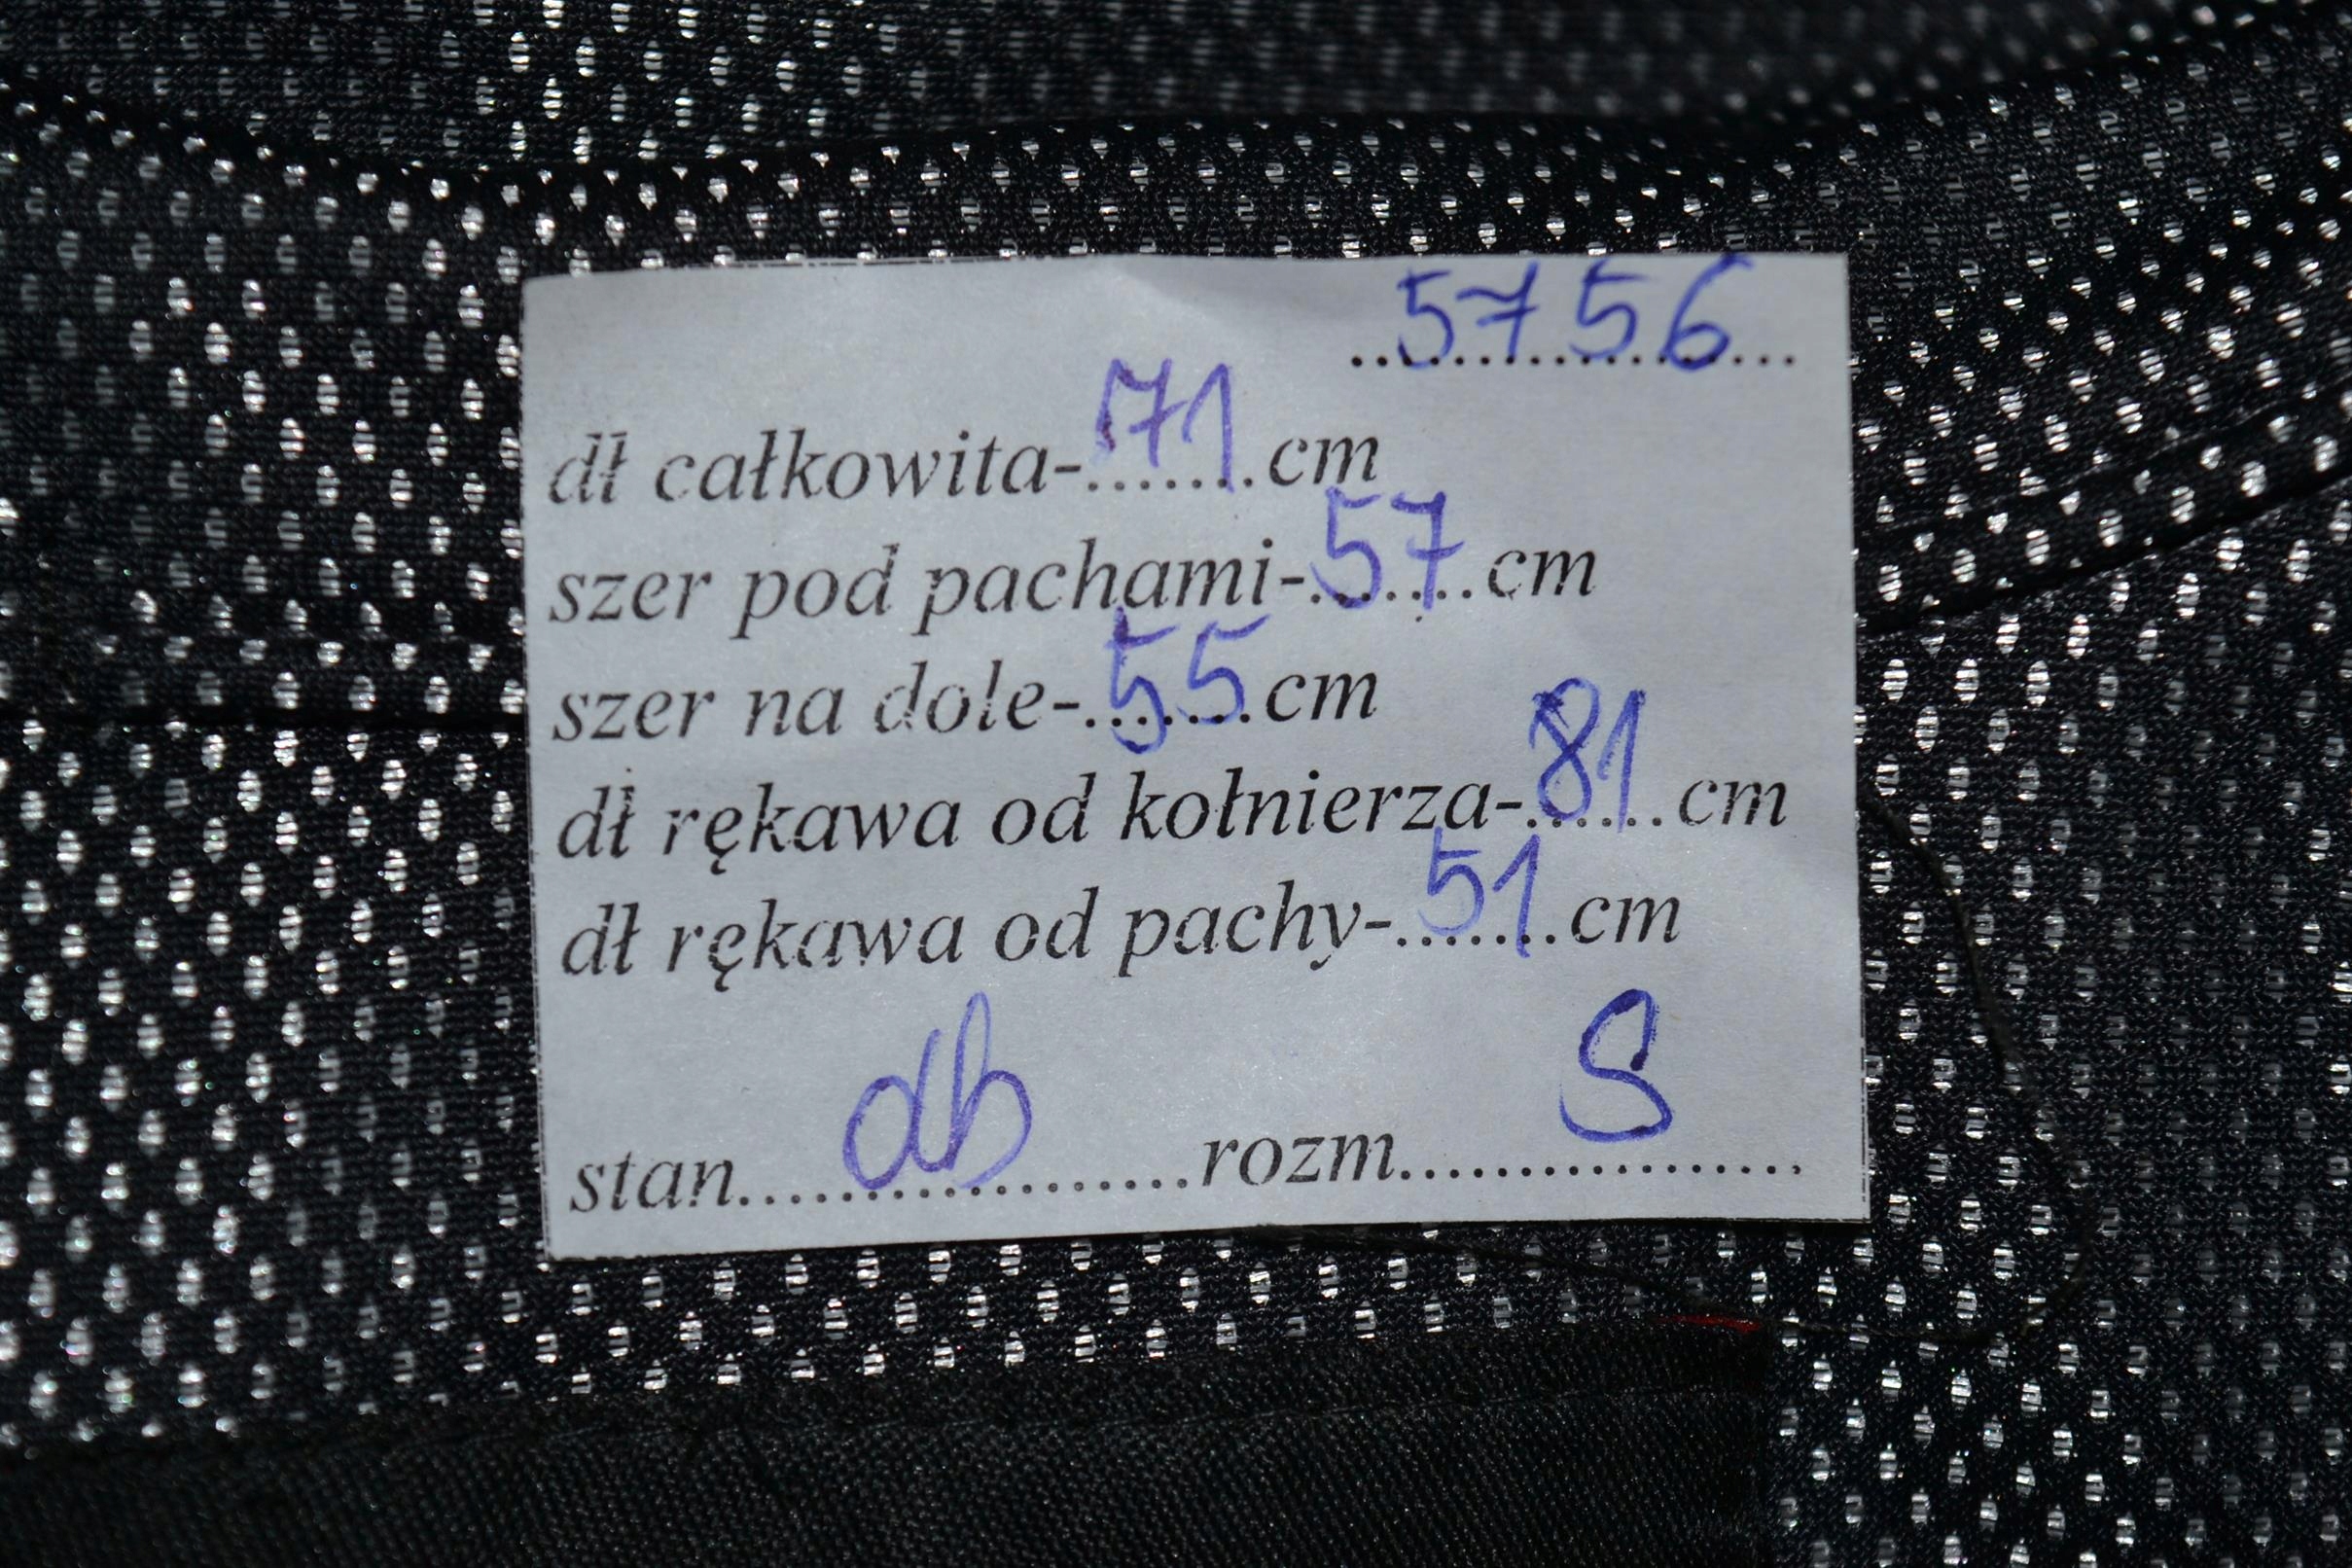 5756
dł całkowita-71cm
szer pod pachami-57cm
szer na dole-55cm
dł rękawa od kołnierza-81cm
dł rękawa od pachy-51cm
stan....db....rozm....S....